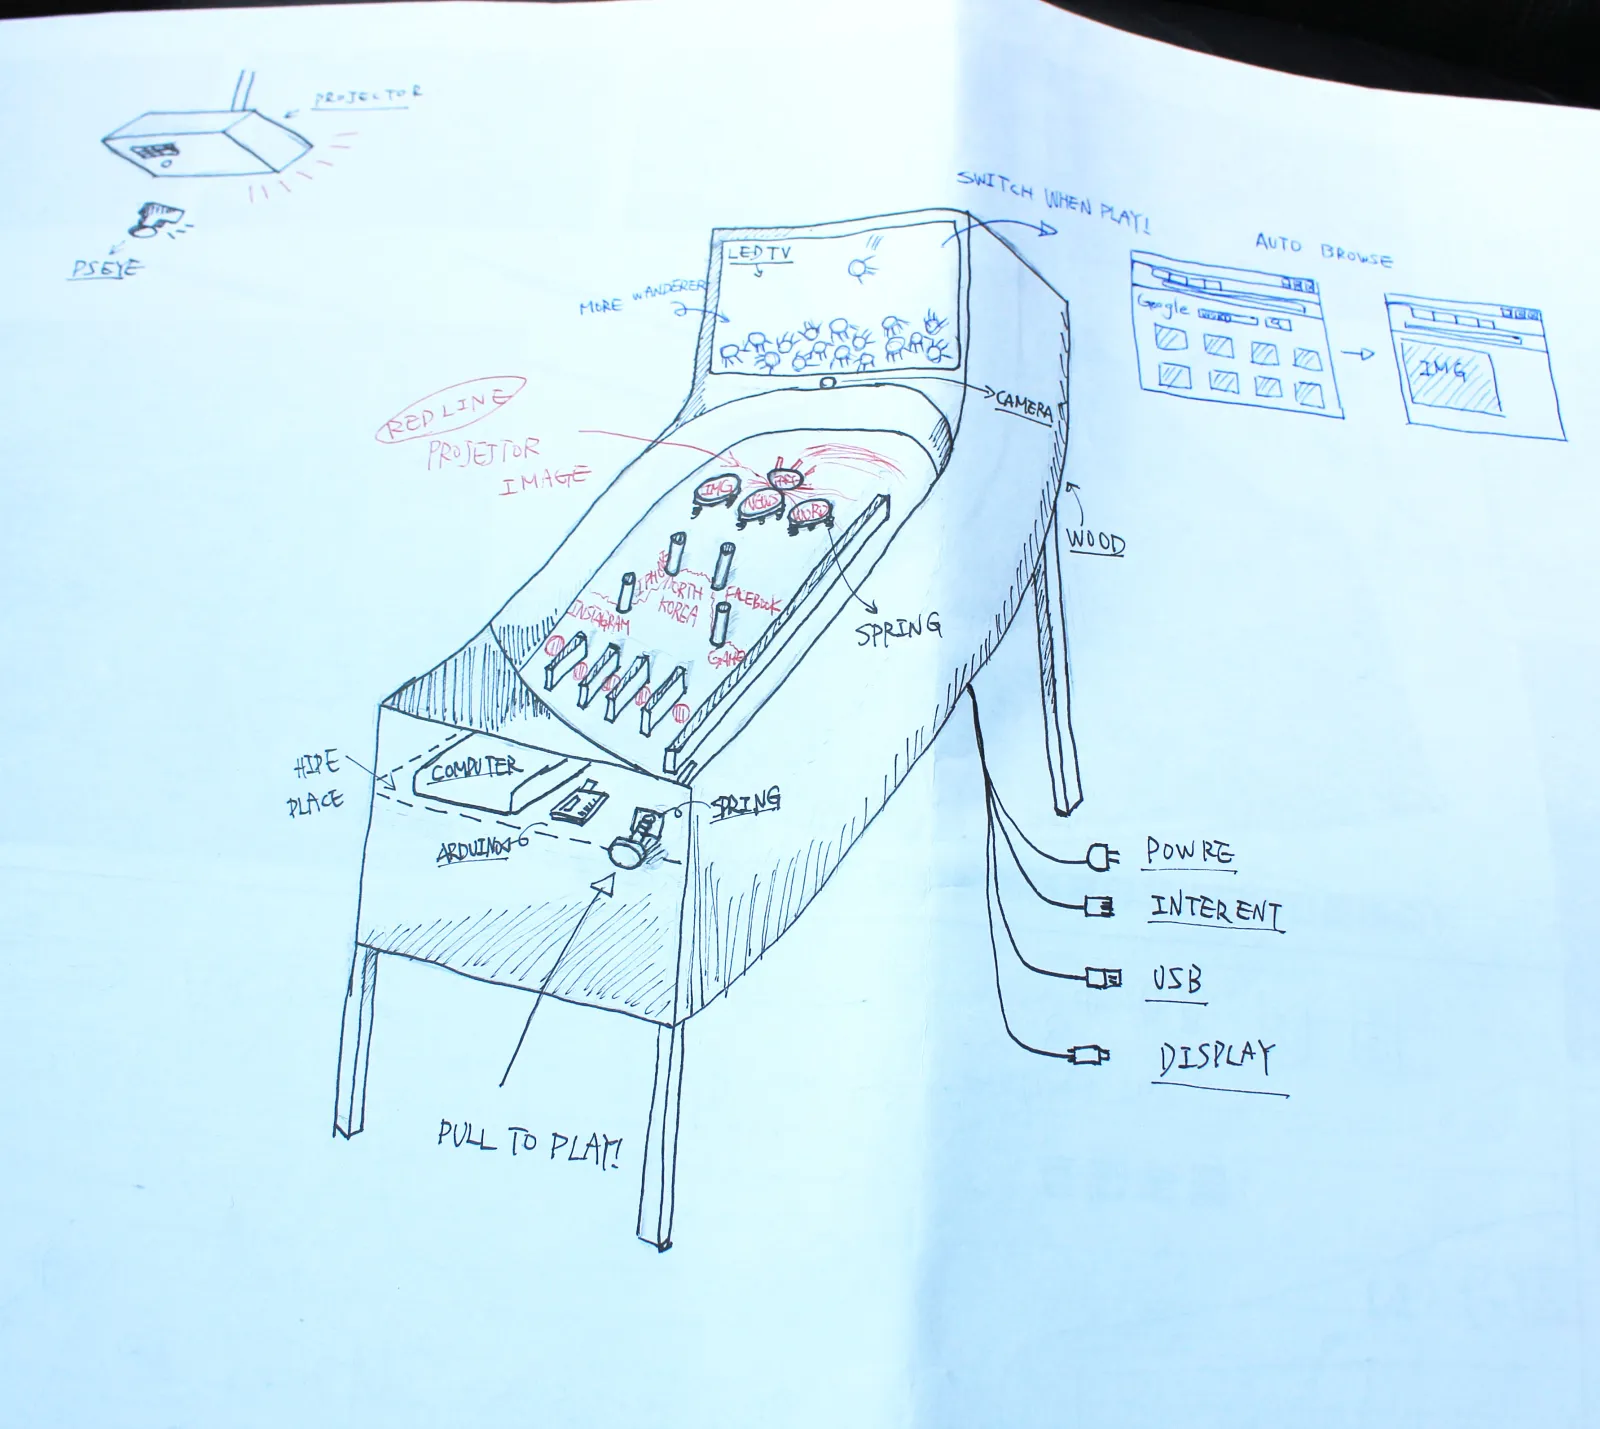 PROJECTOR
PSEYE
SWITCH WHEN PLAY!
AUTO BROWSE
LED TV
MORE WANDERER
Google
IMG
CAMERA
RED LINE
PROJECTOR
IMAGE
WOOD
IMG
NEWS
WORD
SPRING
NORTH
KOREA
FACEBOOK
INSTAGRAM
HIDE
PLACE
COMPUTER
ARDUINO
SPRING
POWRE
INTERENT
USB
DISPLAY
PULL TO PLAY!